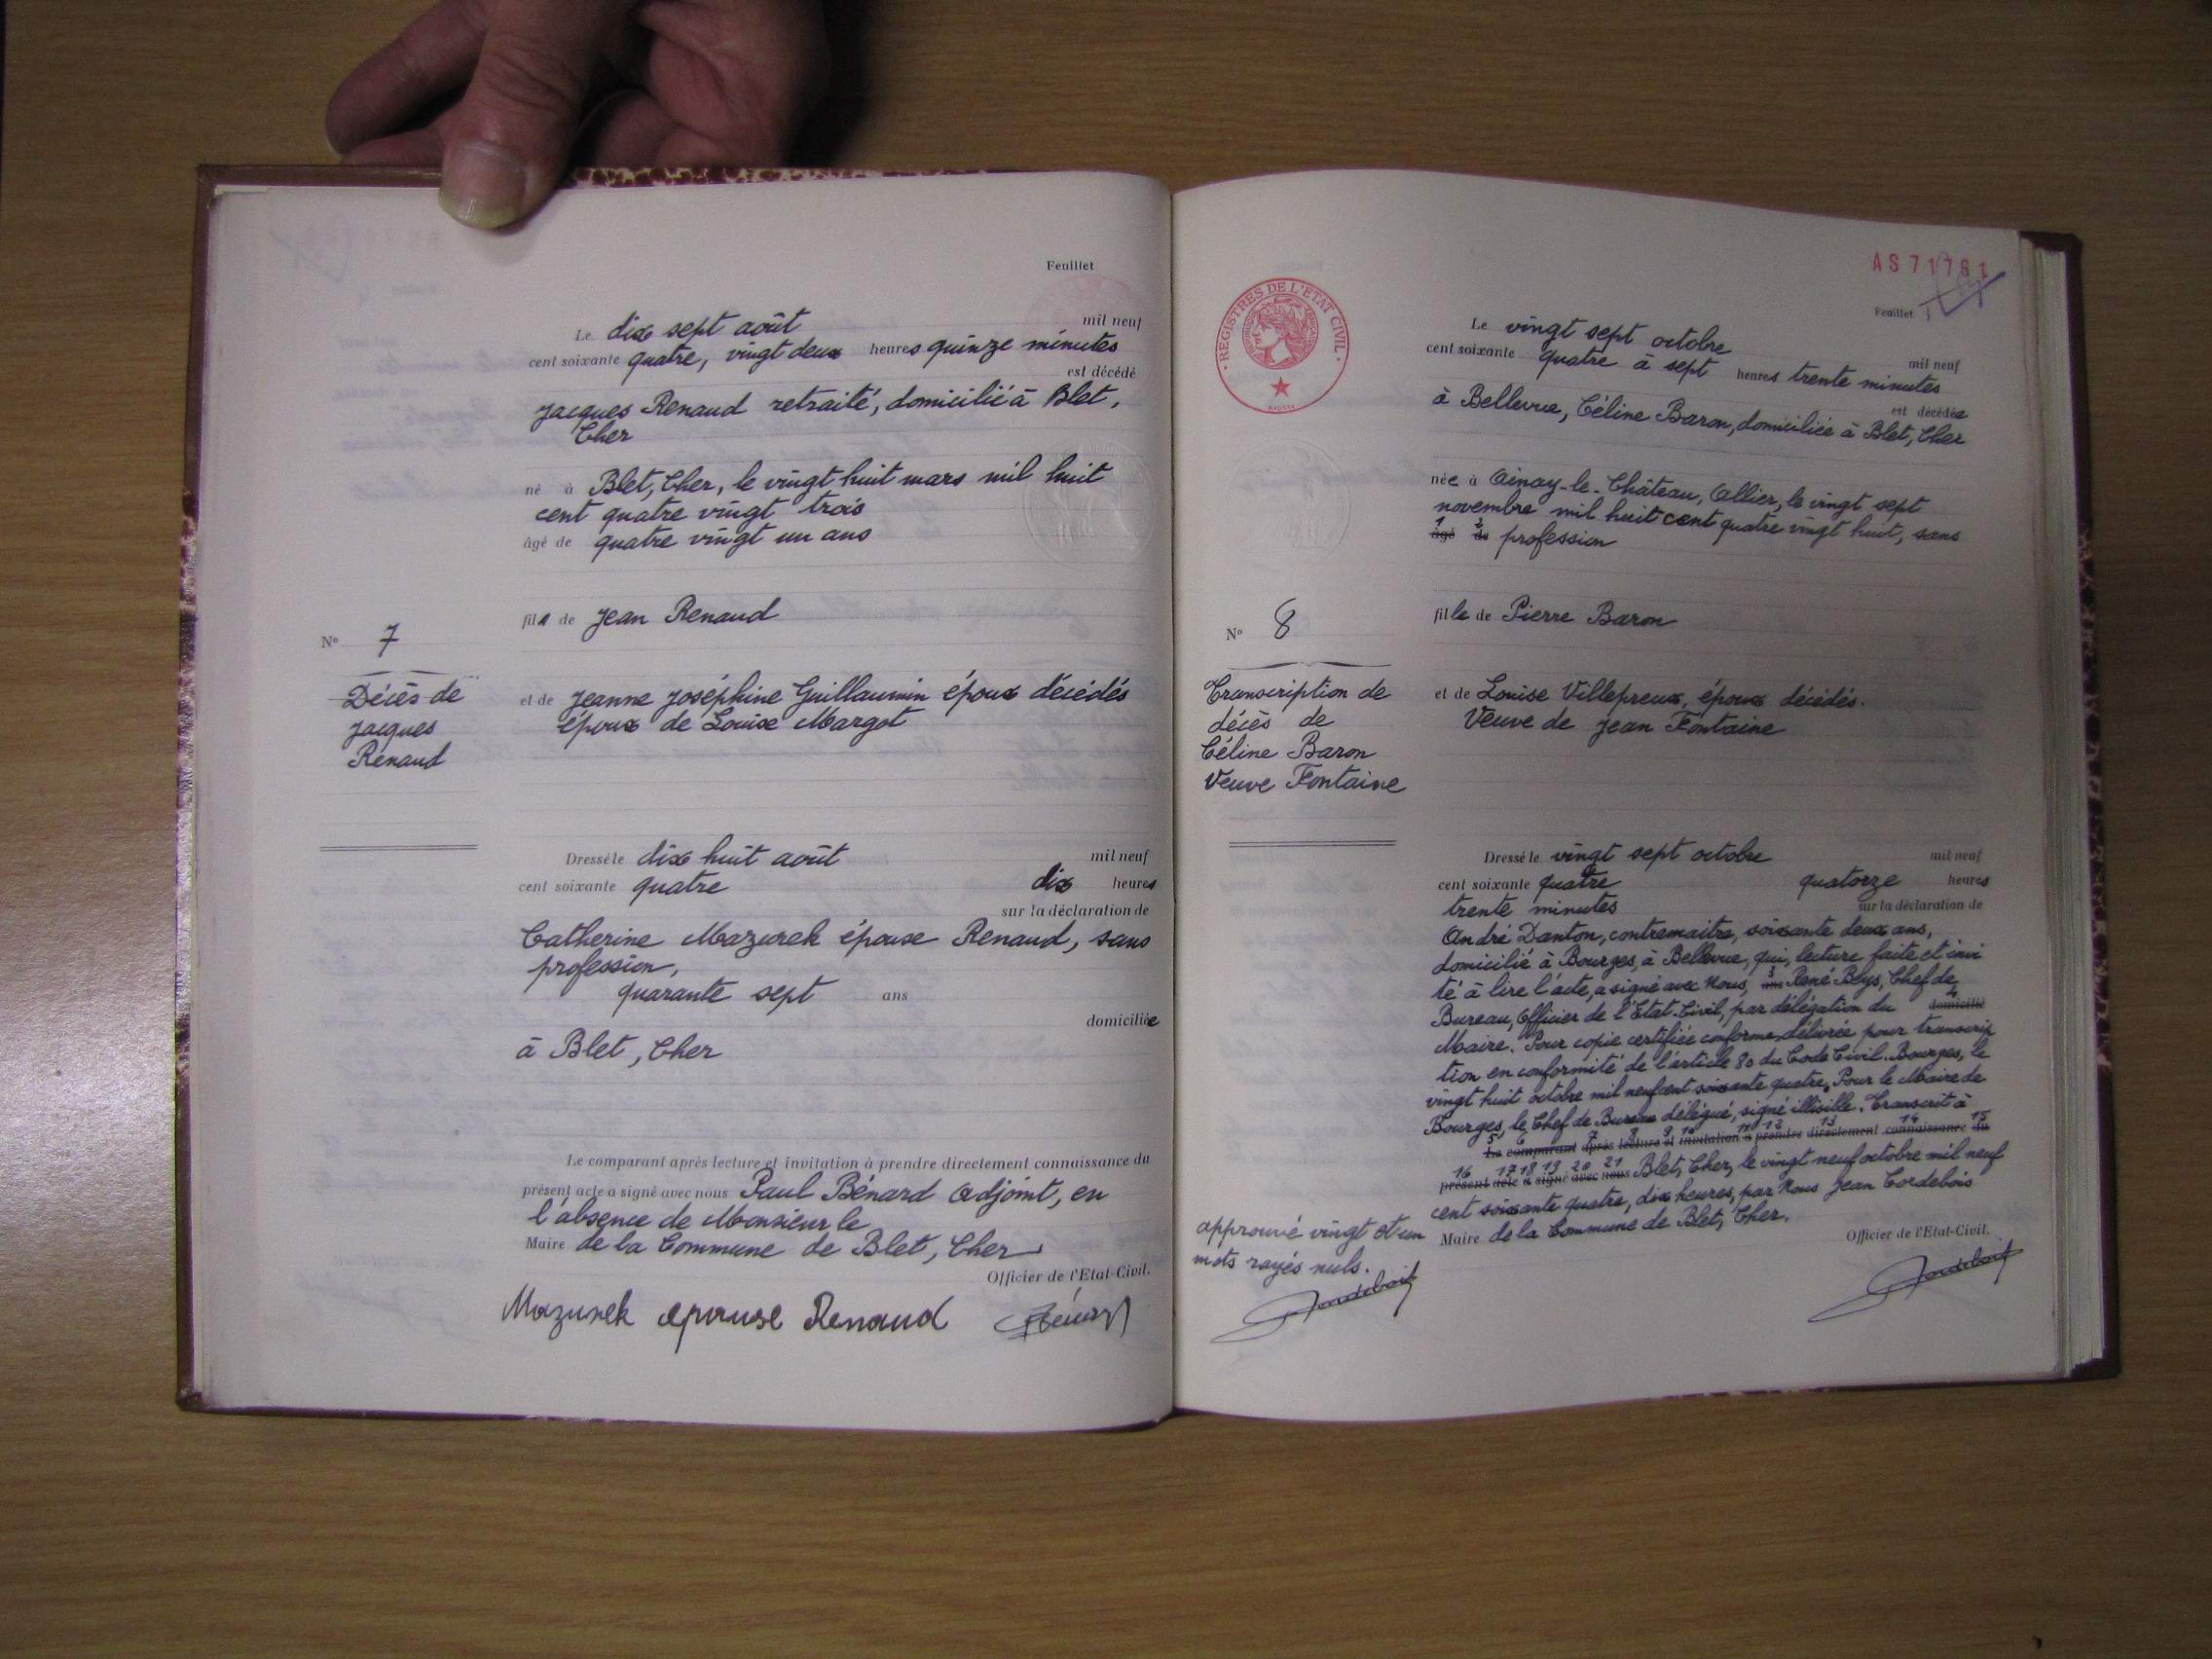 Feuillet
Le dix sept août mil neuf
cent soixante quatre, vingt deux heures quinze minutes
est décédé
Jacques Renaud retraité, domicilié à Blet,
Cher
né à Blet, Cher, le vingt huit mars mil huit
cent quatre vingt trois
âgé de quatre vingt un ans
fils de Jean Renaud
N° 7
Décès de
Jacques
Renaud
et de Jeanne Joséphine Guillaumin époux décédés
époux de Louise Margot
Dressé le dix huit août mil neuf
cent soixante quatre dix heures
sur la déclaration de
Catherine Mazurek épouse Renaud, sans
profession,
quarante sept ans
domiciliée
à Blet, Cher
Le comparant après lecture et invitation à prendre directement connaissance du
présent acte a signé avec nous Paul Bénard Adjoint, en
l'absence de Monsieur le
Maire de la Commune de Blet, Cher
Officier de l'Etat-Civil.
Mazurek epouse Renaud
AS 71761
Feuillet
REGISTRES DE L'ETAT CIVIL
Le vingt sept octobre mil neuf
cent soixante quatre à sept heures trente minutes
est décédée
à Bellevue, Céline Baron, domiciliée à Blet, Cher
née à Ainay-le-Château, Allier, le vingt sept
novembre mil huit cent quatre vingt huit, sans
1 2
âgé de profession
fille de Pierre Baron
N° 8
Transcription de
décès de
Céline Baron
Veuve Fontaine
et de Louise Villepreux, époux décédés.
Veuve de Jean Fontaine
Dressé le vingt sept octobre mil neuf
cent soixante quatre quatorze heures
trente minutes sur la déclaration de
André Danton, contremaitre, soixante deux ans,
domicilié à Bourges, à Bellevue, qui, lecture faite et invi
té à lire l'acte, a signé avec Nous, 3 ans René Blys, Chef de
Bureau, Officier de l'Etat-Civil, par délégation du 4 domicilié
Maire. Pour copie certifiée conforme délivrée pour transcrip
tion en conformité de l'article 80 du Code Civil. Bourges, le
vingt huit octobre mil neuf cent soixante quatre. Pour le Maire de
Bourges, le Chef de Bureau délégué, signé illisible. Transcrit à
5 6 7 8 9 10 11 12 13 14 15
Le comparant après lecture et invitation à prendre directement connaissance du
16 17 18 19 20 21
présent acte a signé avec nous Blet, Cher, le vingt neuf octobre mil neuf
cent soixante quatre, dix heures, par Nous Jean Cordebois
Maire de la Commune de Blet, Cher.
Officier de l'Etat-Civil.
approuvé vingt et un
mots rayés nuls.